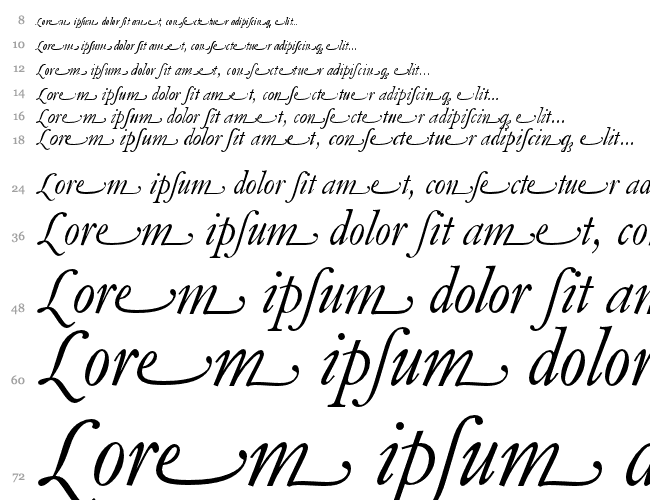 8 Lorem ipſum dolor ſit amet, conſectetuer adipiſcing elit...
10 Lorem ipſum dolor ſit amet, conſectetuer adipiſcing, elit...
12 Lorem ipſum dolor ſit amet, conſectetuer adipiſcing, elit...
14 Lorem ipſum dolor ſit amet, conſectetuer adipiſcing, elit...
16 Lorem ipſum dolor ſit amet, conſectetuer adipiſcing, elit...
18 Lorem ipſum dolor ſit amet, conſectetuer adipiſcing, elit...
24 Lorem ipſum dolor ſit amet, conſectetuer ad
36 Lorem ipſum dolor ſit amet, co
48 Lorem ipſum dolor ſit am
60 Lorem ipſum dolor
72 Lorem ipſum d